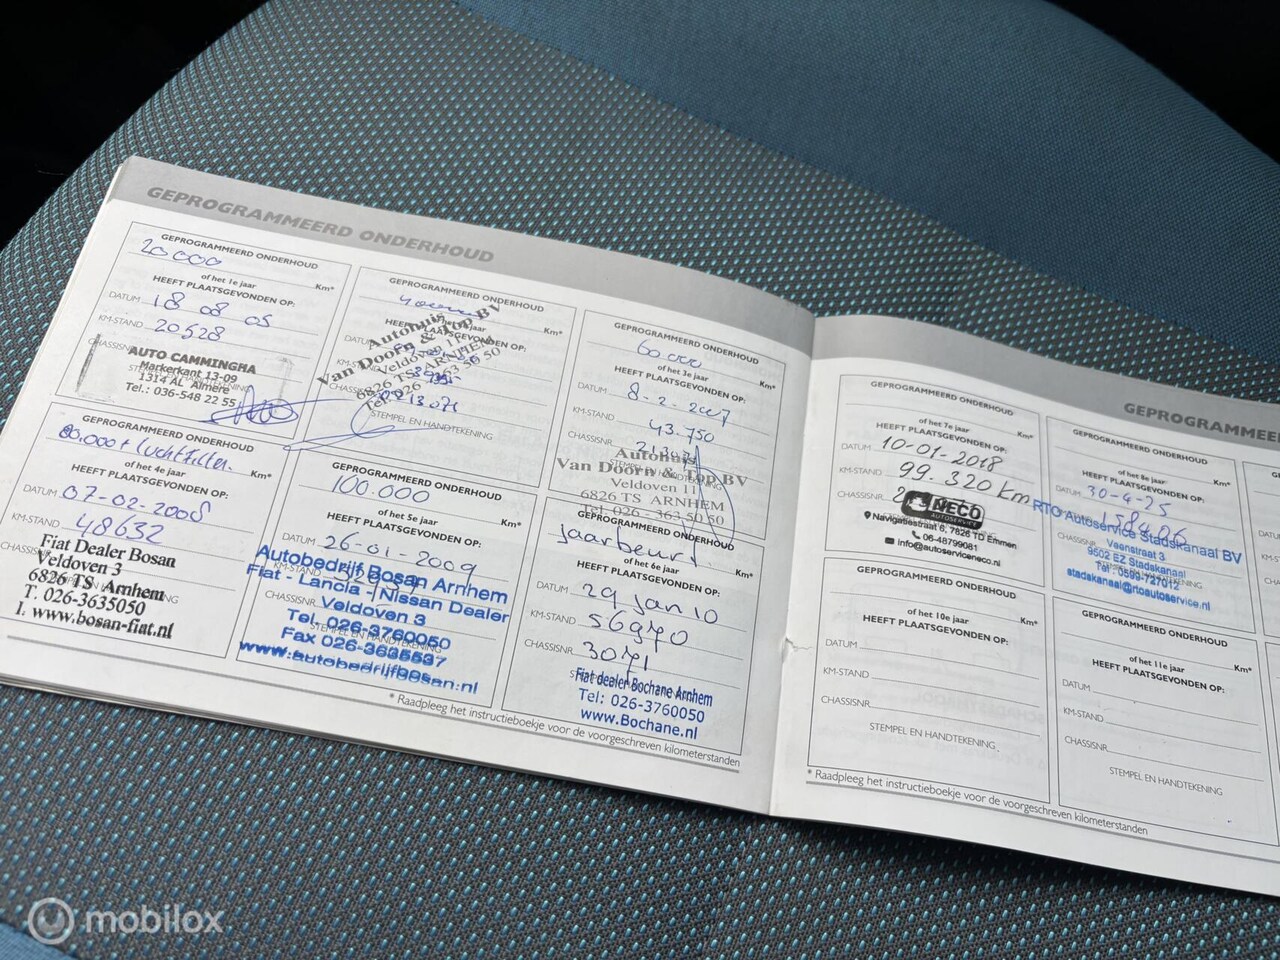 GEPROGRAMMEERD ONDERHOUD
GEPROGRAMMEERD ONDERHOUD
20000
of het 1e jaar Km*
HEEFT PLAATSGEVONDEN OP:
DATUM 18 08 05
KM-STAND 20528
CHASSISNR.
AUTO CAMMINGHA
Markerkant 13-09
1314 AL Almere
Tel.: 036-548 22 55
GEPROGRAMMEERD ONDERHOUD
Km*
Autohuis
Van Doorn & Top BV
Veldoven 11
6826 TS ARNHEM
STEMPEL EN HANDTEKENING
GEPROGRAMMEERD ONDERHOUD
60.000
of het 3e jaar Km*
HEEFT PLAATSGEVONDEN OP:
DATUM 8-2-2007
KM-STAND 43.750
CHASSISNR.
Autohuis
Van Doorn & Top BV
Veldoven 11
6826 TS ARNHEM
Tel. 026 - 363 50 50
GEPROGRAMMEERD ONDERHOUD
80.000 + luchtfilter.
of het 4e jaar Km*
HEEFT PLAATSGEVONDEN OP:
DATUM 07-02-2008
KM-STAND 48632
CHASSISNR.
Fiat Dealer Bosan
Veldoven 3
6826 TS Arnhem
T. 026-3635050
I. www.bosan-fiat.nl
GEPROGRAMMEERD ONDERHOUD
100.000
of het 5e jaar Km*
HEEFT PLAATSGEVONDEN OP:
DATUM 26-01-2009
KM-STAND
CHASSISNR.
Autobedrijf Bosan Arnhem
Fiat - Lancia - Nissan Dealer
Veldoven 3
Tel. 026-3760050
Fax 026-3635537
www.autobedrijfbosan.nl
GEPROGRAMMEERD ONDERHOUD
Jaarbeurt. Km*
of het 6e jaar
HEEFT PLAATSGEVONDEN OP:
DATUM 29 jan 10
KM-STAND
CHASSISNR.
Fiat dealer Bochane Arnhem
Tel: 026-3760050
www.Bochane.nl
* Raadpleeg het instructieboekje voor de voorgeschreven kilometerstanden
GEPROGRAMMEE
GEPROGRAMMEERD ONDERHOUD
of het 7e jaar Km*
HEEFT PLAATSGEVONDEN OP:
DATUM 10-01-2018
KM-STAND 99.320 Km
CHASSISNR.
NECO
AUTOSERVICE
Navigatiestraat 6, 7826 TD Emmen
06-48799081
info@autoserviceneco.nl
GEPROGRAMMEERD ONDERHOUD
of het 8e jaar Km*
HEEFT PLAATSGEVONDEN OP:
DATUM 30-4-25
158406
RTO Autoservice Stadskanaal BV
Veenstraat 3
9502 EZ Stadskanaal
Tel: 0599-727012
stadskanaal@rtoautoservice.nl
GEPROGRAMMEERD ONDERHOUD
of het 10e jaar Km*
HEEFT PLAATSGEVONDEN OP:
DATUM
KM-STAND
CHASSISNR.
STEMPEL EN HANDTEKENING
GEPROGRAMMEERD ONDERHOUD
of het 11e jaar Km*
HEEFT PLAATSGEVONDEN OP:
DATUM
KM-STAND
CHASSISNR.
STEMPEL EN HANDTEKENING
* Raadpleeg het instructieboekje voor de voorgeschreven kilometerstanden
mobilox